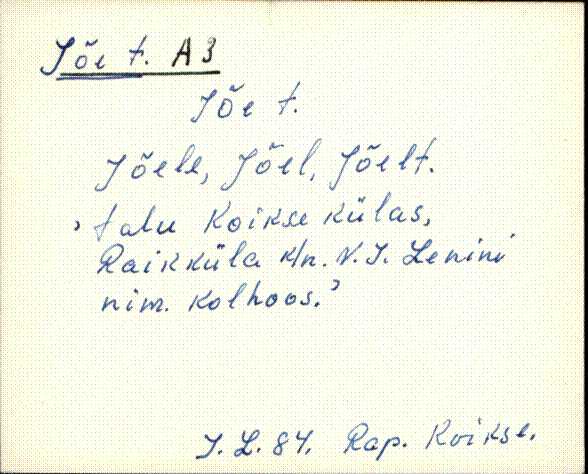 Jõe t. A3
Jõe t.
Jõele, Jõel, Jõelt.
, talu Koikse külas,
Raikküla k/n. V. I. Lenini
nim. kolhoos.’
J. L. 84. Rap. Koikse.